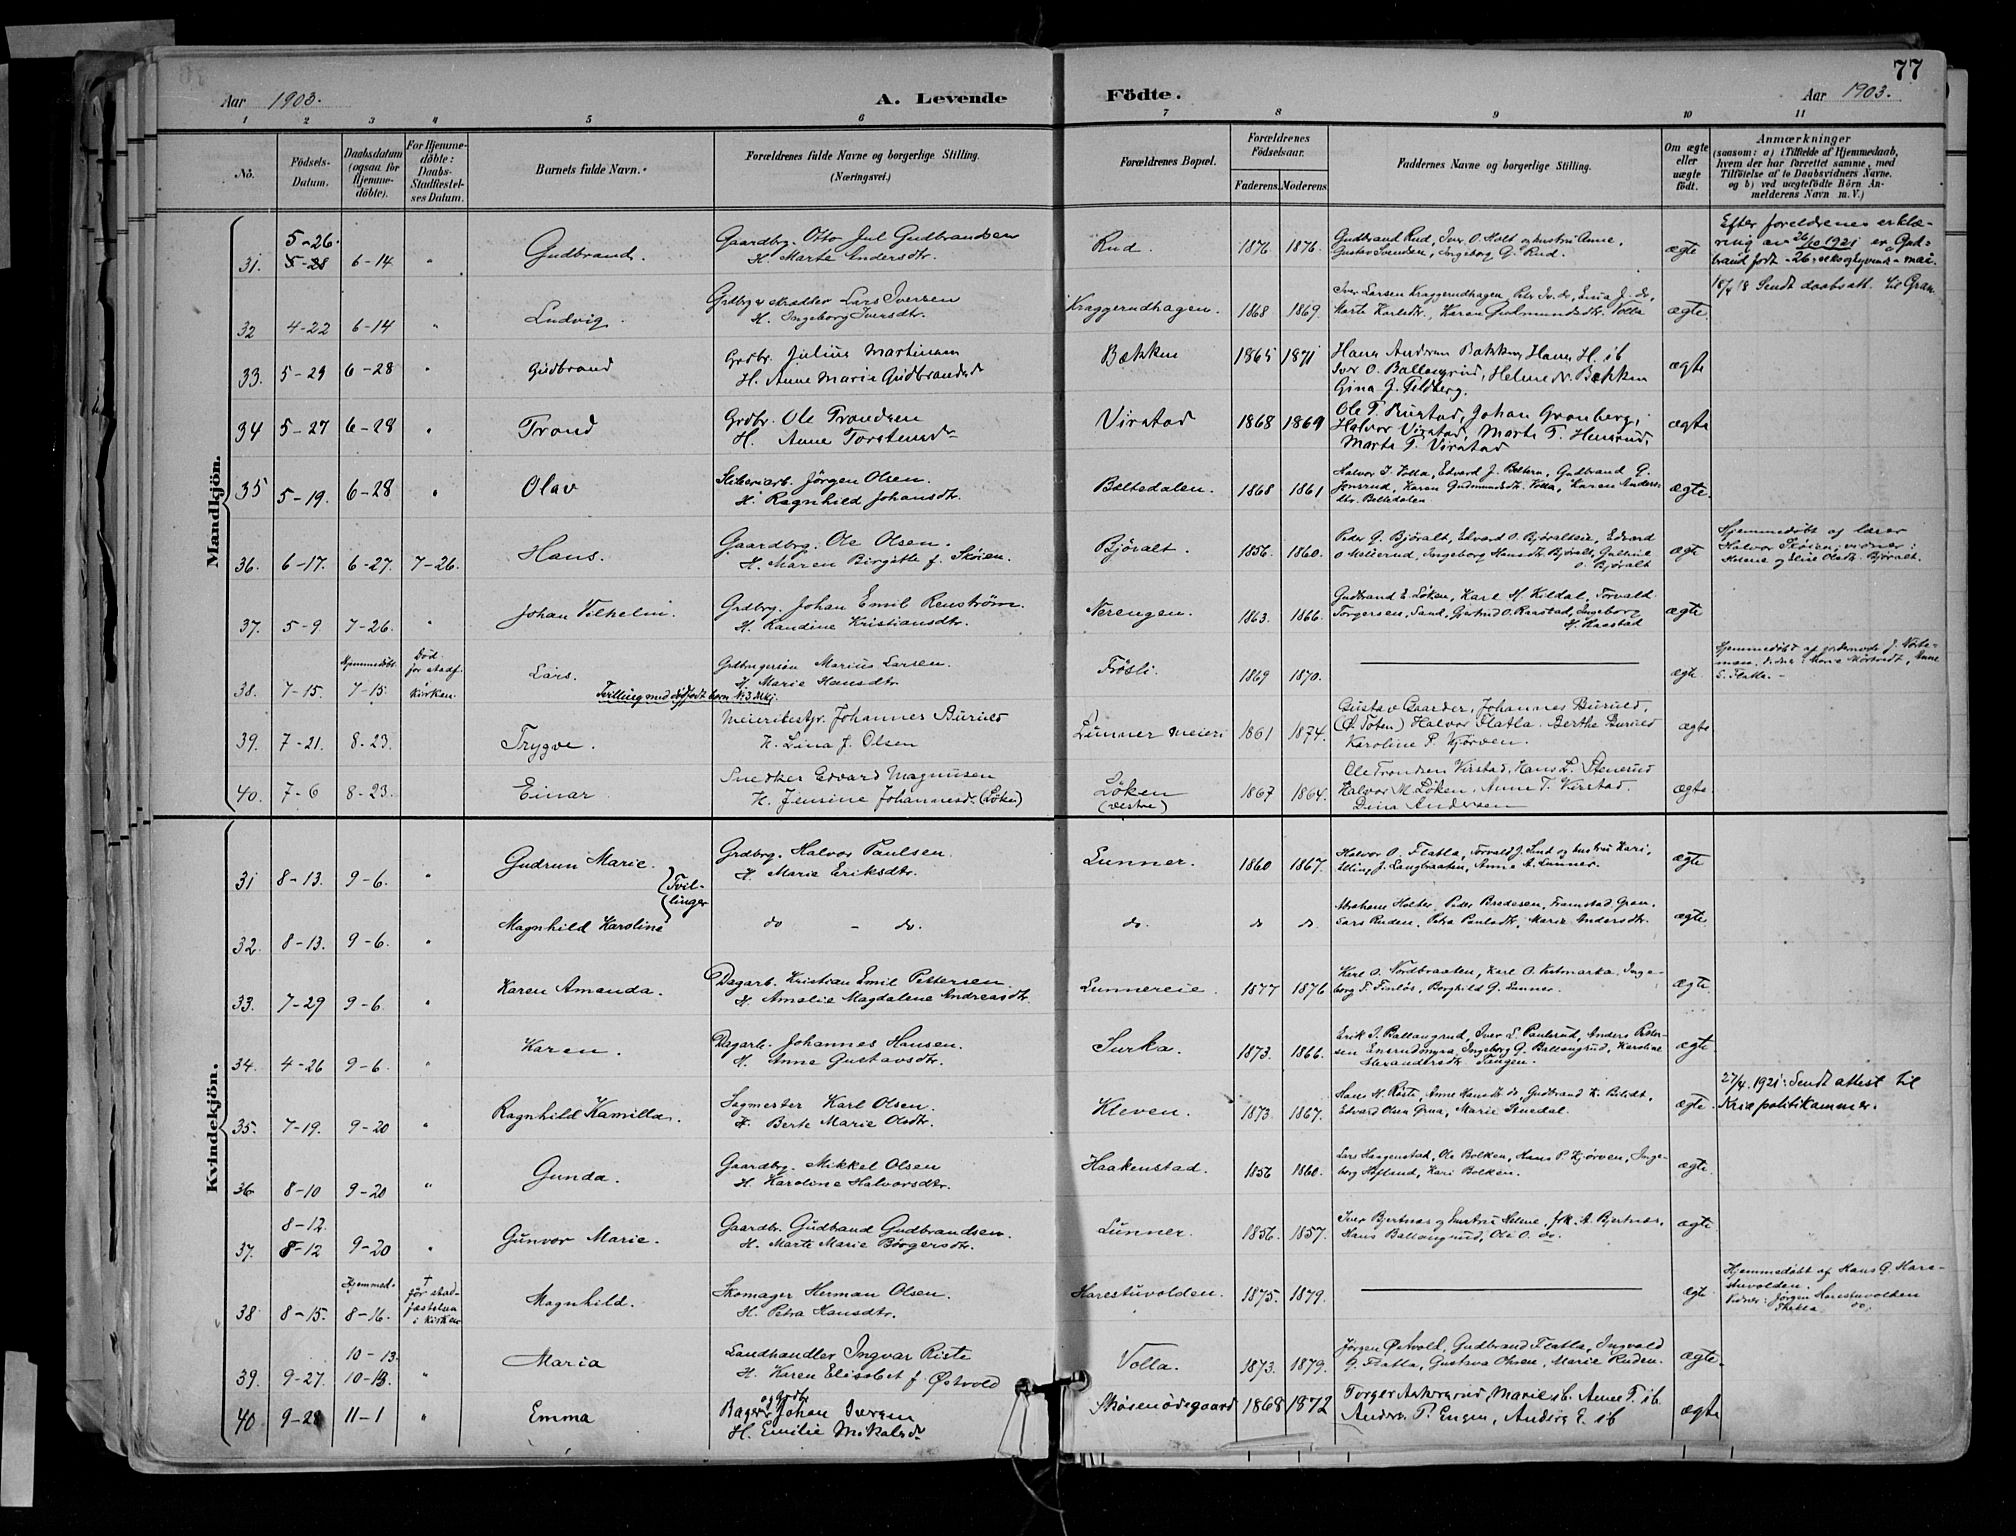 77
Aar 1903.
A. Levende Födte.
Aar 1903.
1 2 3 4 5 6 7 8 9 10 11
No.
Födsels-Datum.
Daabsdatum (ogsaa for Hjemmedöbte).
For Hjemmedöbte: Daabs-Stadfæstelses Datum.
Barnets fulde Navn.
Forældrenes fulde Navne og borgerlige Stilling.
(Næringsvei.)
Forældrenes Bopæl.
Forældrenes Födselsaar.
Faderens. Moderens.
Faddernes Navne og borgerlige Stilling.
Om ægte eller uægte födt.
Anmærkninger
(saasom: a) i Tilfælde af Hjemmedaab,
hvem der har forrettet samme, med
Tilföielse af to Daabsvidners Navne.
og b) ved uægtefödte Börn An-
melderens Navn m. V.)
Mandkjön.
31. 5-26. 5-28 6-14 " Gudbrand. Gaardbr. Otto Jul Gudbrandsen
H. Marte Andersdtr.
Rud. 1876 1876. Gudbrand Rud, Iver O. Holt og hustru Anne,
Gustav Svendsen, Ingeborg G. Rud.
ægte
Efter foreldrenes erklæ-
ring av 26/10 1921 er Gud-
brand født - 26 - seks og tyvende - mai.
32 4-22 6-14 " Ludvig. Lars Iversen
H. Ingeborg Iversdtr.
Kraggerudhagen. 1868 1869. Iver Larsen Kraggerudhagen,
Marte Karlsdtr., Karen Gudmundsdtr. Volla
ægte.
Sendt daabsatt. til Gran.
33. 5-29 6-28 " Gudbrand Grdbr. Julius Martinsen
H. Anne Maria Gudbrandsd
Bækken 1865 1871 Hans Andersen Bækken, Hans H. ib
Iver O. Ballangrud, Helene Bækken
Gina G. Feldberg.
ægte
34 5-27 6-28 " Trond Grdbr. Ole Trondsen
H. Anne Torstensdr
Virstad 1868 1869 Ole T. Rustad, Johan Grønberg,
Halvor Virstad, Marte T. Hensrud,
Marte T. Virstad
ægte
35 5-19. 6-28 " Olav Sliberiarb. Jörgen Olsen.
H. Ragnhild Johansdtr.
Bøltedalen. 1868 1861 Halvor I. Volla, Edvard J. Gudbrand G.
Jonsrud, Karen Gudmundsdtr. Volla, Karen Anders-
dtr. Bøltedalen
ægte.
36. 6-17. 6-27. 7-26. Hans. Gaardbrg. Ole Olsen.
H. Maren Birgitte f. Skøien.
Bjøralt. 1856. 1860. Peder G. Bjøralt, Edvard O. Bjøraltseie, Edvard
O. Ingeborg Hansdtr. Bjøralt,
O. Bjøralt
ægte
Hjemmedøbt af lærer
Halvor Skøien; vidner:
Helene og Eline Olsdtr. Bjøralt.
37. 5-9 7-26. " Johan Vilhelm. Grdbrg. Johan Emil Renström.
H. Randine Kristiansdtr.
Nerengen. 1863. 1866. Gudbrand E. Løken, Karl H. Kildal, Torvald
Torgersen, Sand, Gjertrud O. Raastad, Ingeborg
H. Raastad
ægte
38. 7-15. Hjemmedøbt. 7-15. Død før stadf. i kirken. Lars. Grdbrugersøn Marius Larsen.
H. Marie Hansdtr.
Tvilling med dødfødt barn N. 3 Mkj.
Frøsli. 1869 1870. ægte.
Hjemmedøbt af jordemode J.
39. 7-21. 8-23. Trygve. Meieribestyr. Johannes Burud
H. Lina J. Olsen
Lunner meieri 1861 1874. Gustav Gaarder, Johannes Burud,
(Ø. Toten) Halvor Flatla. Berthe Burud
Karoline P. Kjørven.
ægte
40. 7-6 8-23. Einar. Snedker Edvard Magnusen
H. Jensine Johannesd. (Løken)
Løken
(vestre)
1867 1864. Ole Trondsen Virstad, Hans L. Stenerud
Halvor M. Løken. Anne T. Virstad.
Dina Andersen
ægte
Kvindekjön.
31 8-13. 9-6. " Gudrun Marie. Grdbrg. Halvor Paulsen.
H. Marie Eriksdtr.
} Tvil-
linger
Lunner. 1860 1867. Halvor O. Flatla, Torvald J. Sand og hustru Kari,
Elling J. Langbraaten, Anna A. Lunner.
ægte
32. 8-13. 9-6. " Magnhild Karoline do - do. do. do do. Abraham Holter, Peder Bredesen, Framstad Gran,
Lars Ruden, Petra Paulsdtr, Marie Andersdtr.
ægte
33. 7-29 9-6 " Karen Amanda. Dagarb. Kristian Emil Pettersen.
H. Amalie Magdalene Andreasdtr.
Lunnereie. 1877 1876 Karl O. Nordbraaten, Karl O. Vestmarka, Inge-
borg T. Finløs, Borghild G. Lunner.
ægte.
34. 4-26 9-6. " Karen. Dagarb. Johannes Hansen.
H. Anne Gustavsdtr.
Surka. 1873. 1866. Erik I. Ballangrud, Iver L. Paulsrud, Anders Peder-
sen Ensrudmyra, Ingeborg G. Ballangrud, Karoline
Alexandersdtr. Tangen.
ægte.
35. 7-19. 9-20 " Ragnhild Kamilla. Sagmester Karl Olsen.
H. Berte Marie Olsdtr.
Kleven. 1873. 1867. Hans H. Røste, Anne Hansdtr. do, Gudbrand K.
Edvard Olsen Grua, Marie Smedal.
ægte.
27/4. 1921: Sendt attest til
Kria politikammer.
36. 8-10 9-20 " Gunda. Gaardbrg. Mikkel Olsen
H. Karoline Halvorsdtr.
Haakenstad. 1856 1860. Lars Haagenstad, Ole Bolken, Hans P. Kjørven, Inge-
borg Hofland, Kari Bolken.
ægte.
37. 8-12. 8-12 9-20 " Gunvor Marie. Gaardbr. Gudbrand Gudbrandsen.
H. Marte Marie Børgersdtr.
Lunner. 1856. 1857. Iver Bjertnæs og hustru Helene, frk. A. Bjertnæs,
Hans Ballangrud, Ole O. do.
ægte
38 8-15. Hjemmed. 8-16. † før stad-
fæstelsen
i kirken
Magnhild. Skomager Herman Olsen.
H. Petra Hansdtr.
Harestuvolden. 1875. 1879. ægte
Hjemmedøbt af Hans G. Hare-
stuvolden.
Vidner: Jørgen Harestuvolden
Thekla do.
39. 9-27. 10-13. 10-13. " Maria Landhandler Ingvar Riste
H. Karen Elisabet f. Østvold
Volla. 1873. 1879. Jørgen Østvold, Gudbrand Flatla, Ingvald
G. Flatla, Gustava Olsen, Marie Ruden.
ægte.
40 9-28 11-1 " Emma Bager og Grdbr. Johan Iversen
H. Emilie Mikalsdr
Skøsenødegaard 1868 1872 Torger Askerud, Marie ib. Anne T. ib.
Anders P. Engen, Anders E. ib
ægte